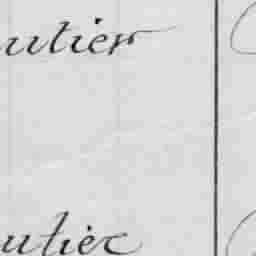 utier
utier